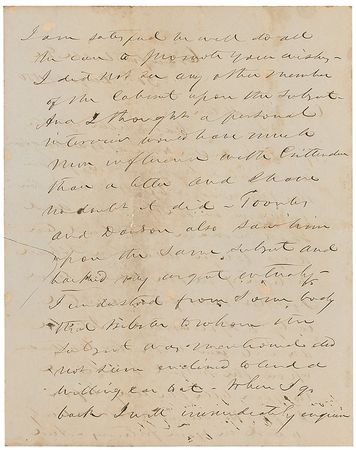 I am satisfied he will do all
he can to promote your wishes -
I did not see any other member
of the Cabinet upon the subject -
And I thought a personal
interview would have much
more influence with Crittenden
than a letter and I have
no doubt it did - Toombs
and Dawson also saw him
upon the same subject and
backed my urgent entirely -
I understood from some body
that Webster to whom the
subject was mentioned did
not seem inclined to lend a
willing ear to it - When I go
back I will immediately inquire